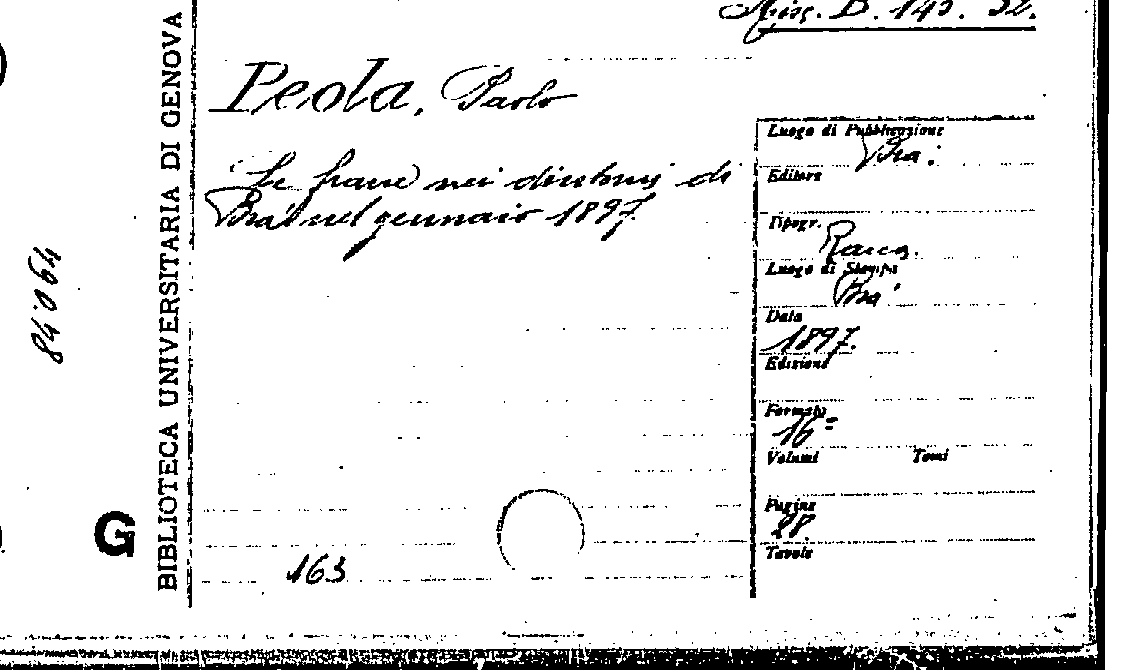 Misc. B. 143. 32.
Peola, Paolo
Le frane nei dintorni di
Bra nel gennaio 1897.
163
Luogo di Pubblicazione
Bra.
Editore
Tipogr.
Racca.
Luogo di Stampa
Bra
Data
1897.
Edizione
Formato
16°
Volumi Tomi
Pagine
28.
Tavole
BIBLIOTECA UNIVERSITARIA DI GENOVA
84064
G